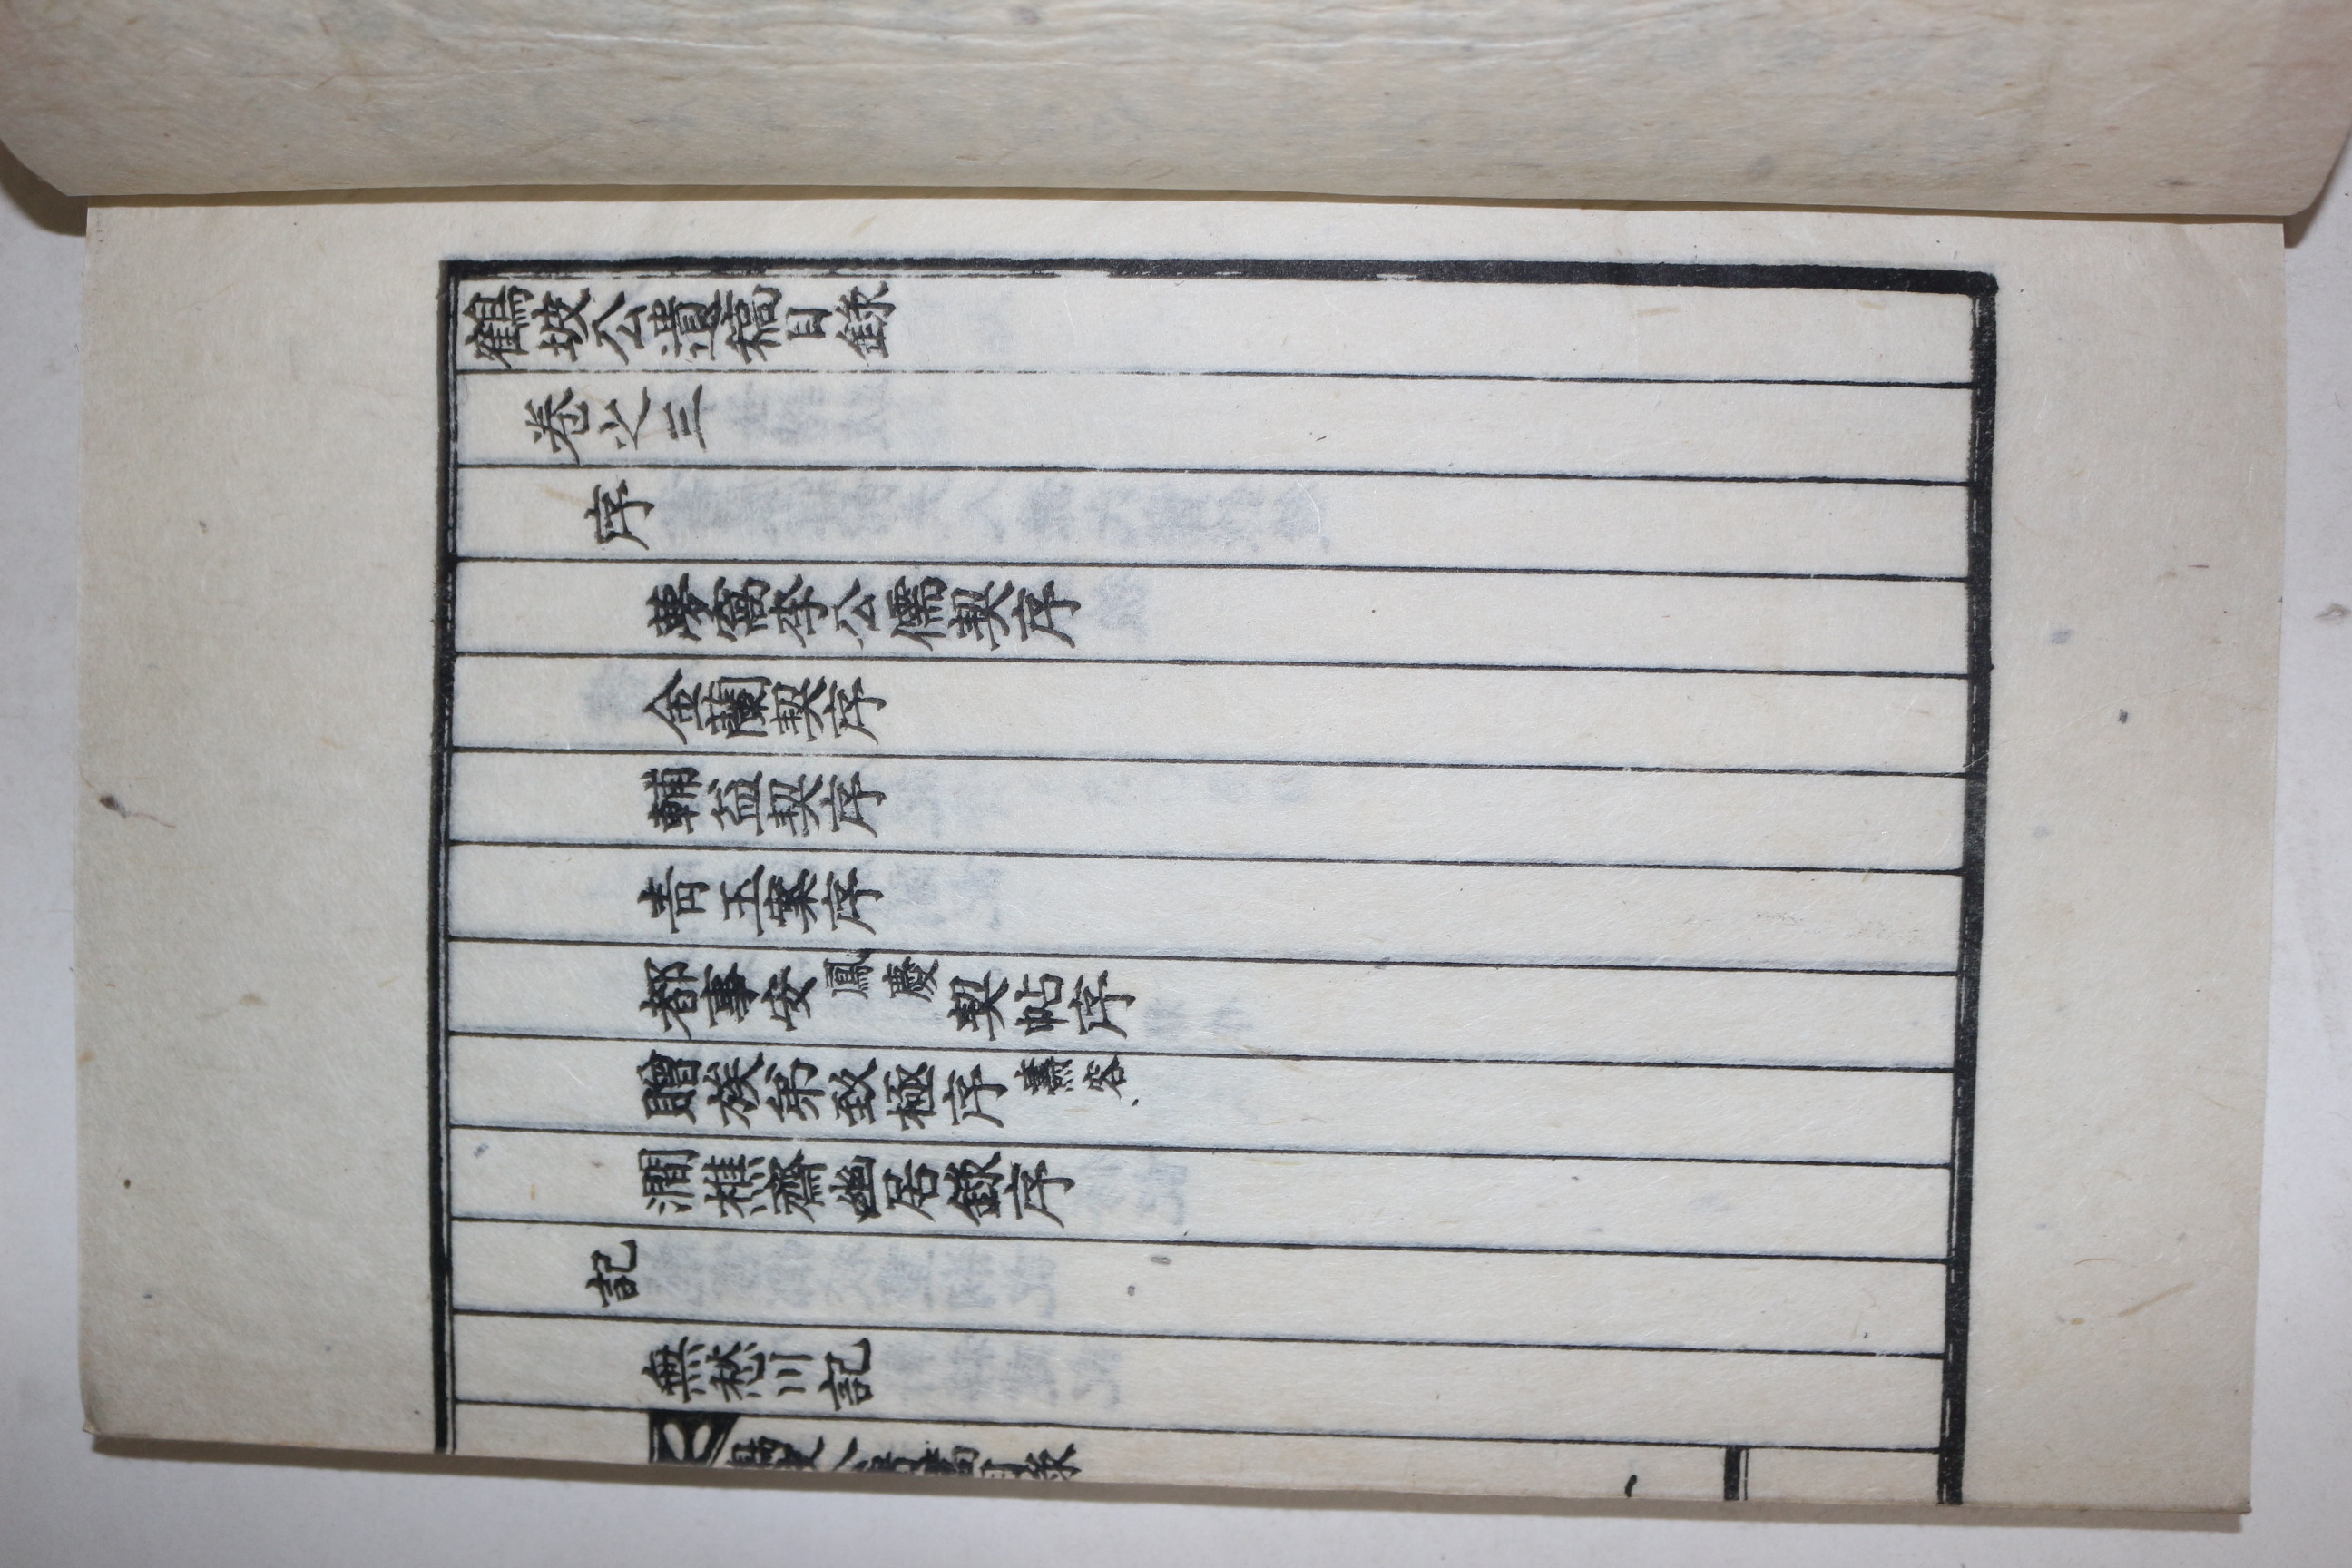 鶴坡公遺稿目錄
卷之三
序
夢窩李公儒契序
金蘭契序
輔益契序
靑玉案序
都事安鳳慶契帖序
贈族弟致極序燾容
澗樵齋幽居錄序
記
無愁川記